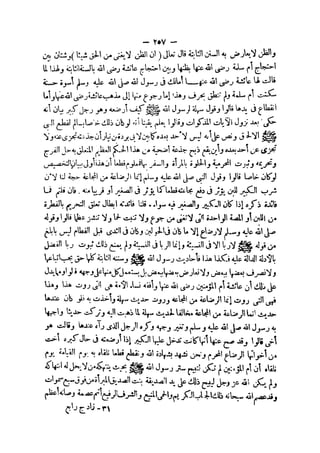 — ٢٥٧ —
والظن لا يعارض به السنن الثابتة قال تعالى ( ان الظن لا يغنى من الحق شيئا ) وشتان بين
احتجاج أم سلمة رضى الله عنها بظنها وبين احتجاج عائشة رضى الله بالسنة الثابتة ولهذا لما
قالت لها عائشة رضى الله عنها أمالك فى رسول الله صلى الله عليه وسلم أسوة حسنة
سكتت أم سلمة ولم تنطق بحرف وهذا إما رجوع منها إلى مذهب عائشة رضى الله عنها وأما
انقطاع فى يدها قالوا وقول سهلة لرسول الله ﷺ كيف أرضعه وهو رجل كبير بيان أنه
حكى بعد نزول الآيات المذكورات وقالوا يعلم يقينا أنه لو كان ذلك خاصا بسالم لقطع النبى
ﷺ الالحاق ونص على أنه ليس لأحد بعده كما بين لأبى بردة بن نيار أن جذعته تجزى عنه ولا
تجزى عن أحد بعده وأين يقع ذبح جذعة أضحية من هذا الحكم العظيم المتعلق به حل الفرج
وتحريمه وثبوت المحرمية والخلوة بالمرأة والسفر بها فمعلوم قطعا أن هذا أولى ببيان التخصيص
لو كان خاصا قالوا وقول النبى صلى الله عليه وسلم إنما الرضاعة من المجاعة حجة لنا لان
شرب الكبير للبن يؤثر فى دفع مجاعته قطعا كما يؤثر فى الصغير أو قريبا منه . فان قلتم فما
فائدة ذكره إذا كان الكبير والصغير فيه سواء . قلنا فائدته إبطال تعلق التحريم بالقطرة
من اللبن أو المصة الواحدة التى لا تغنى من جوع ولا تنبت لحما ولا تنشز عظما قالوا وقوله
صلى الله عليه وسلم لا رضاع إلا ما كان فى الحولين وكان فى الثدى قبل الفطام ليس بابلغ
من قوله ﷺ لا ربا الا فى النسيئة وإنما الربا فى النسيئة ولم يمنع ذلك ثبوت ربا الفضل
بالأدلة الدالة عليه فكذا هذا فأحاديث رسول الله ﷺ وسننه الثابتة كلها حق يجب اتباعها
ولا نضرب بعضها ببعض ولا نعارض بعضها ببعض بل نستعمل كلا منها على وجهه قالوا ومما يدل
على ذلك أن عائشة أم المؤمنين رضى الله عنها وأفقه نساء الأمة هى التى روت هذا وهذا
فهى التى روت إنما الرضاعة من المجاعة وروت حديث سهلة وأخذت به فلو كان عندها
حديث انما الرضاعة من المجاعة مخالفا لحديث سهلة لما ذهبت اليه وتركت حديثا واجهها
به رسول الله صلى الله عليه وسلم وتغير وجهه وكره الرجل الذى رآه عندها وقالت هو
أخى قالوا وقد صح عنها أنها كانت تدخل عليها الكبير إذا أرضعته فى حال كبره أخت
من أخواتها الرضاع المحرم ونحن نشهد بشهادة الله ونقطع قطعا نلقاه به يوم القيامة يوم
نلقاه أن أم المؤمنين لم تكن لتبيح ستر رسول الله ﷺ بحيث ينتهكه من لا يحل له انتهاكه
ولم يكن الله عز وجل ليبيح ذلك على يد الصديقة بنت الصديق المبرأة من فوق سبع سموات
وقد عصم الله سبحانه ذلك الجناب الكريم والحمى المنيع والشرف الرفيع أتم عصمة وصانه أعظم